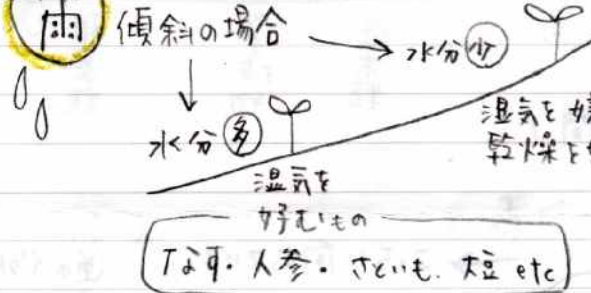 雨 傾斜の場合
水分少
水分多
湿気を
乾燥を
湿気を
好むもの
なす・人参・さといも・大豆 etc